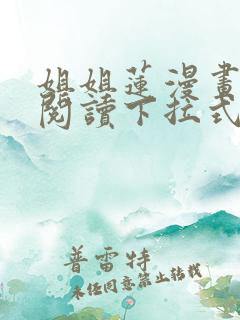 姐姐蓮漫畫
閱讀下拉式
普雷特
未經同意禁止轉載